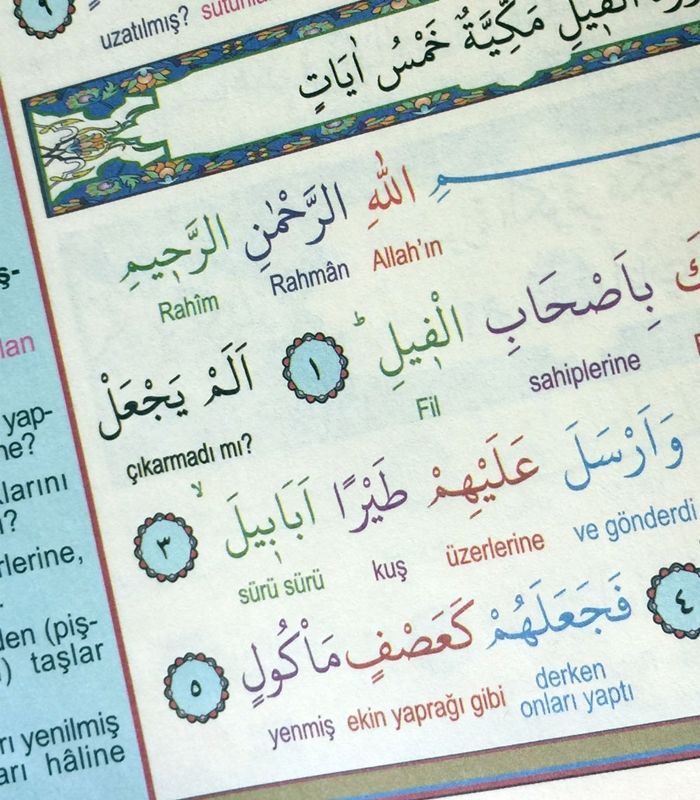 ٩
uzatılmış?
الْفٖيلِ مَكِّيَّةٌ خَمْسُ اٰيَاتٍ
مِ اللّٰهِ الرَّحْمٰنِ الرَّحٖيمِ
Allah'ın Rahmân Rahîm
كَ بِاَصْحَابِ الْفٖيلِؕ ١ اَلَمْ يَجْعَلْ
sahiplerine Fil çıkarmadı mı?
وَاَرْسَلَ عَلَيْهِمْ طَيْرًا اَبَابٖيلَۙ ٣
ve gönderdi üzerlerine kuş sürü sürü
٤ فَجَعَلَهُمْ كَعَصْفٍ مَأْكُولٍ ٥
derken onları yaptı ekin yaprağı gibi yenmiş
ş-
lan
yap-
ne?
larını
ı?
rlerine,
den (piş-
) taşlar
rı yenilmiş
arı hâline